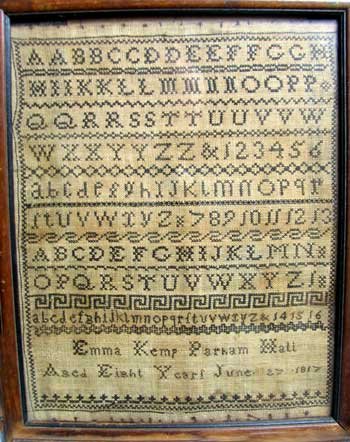 AABBCCDDEEFFGGH
HIIKKLLMMNNOOPP
QQRRSSTTUUVVW
WXXYYZZ&123456
abcdefghIJklmnopqr
ſtuvwxyz78910111213
ABCDEFGHIJKLMN
OPQRSTUVWXYZ
abcdefghIJklmnopqrſtuvwxyz&141516
Emma Kemp Parham Hall
Aged Eight Years June 27 1817